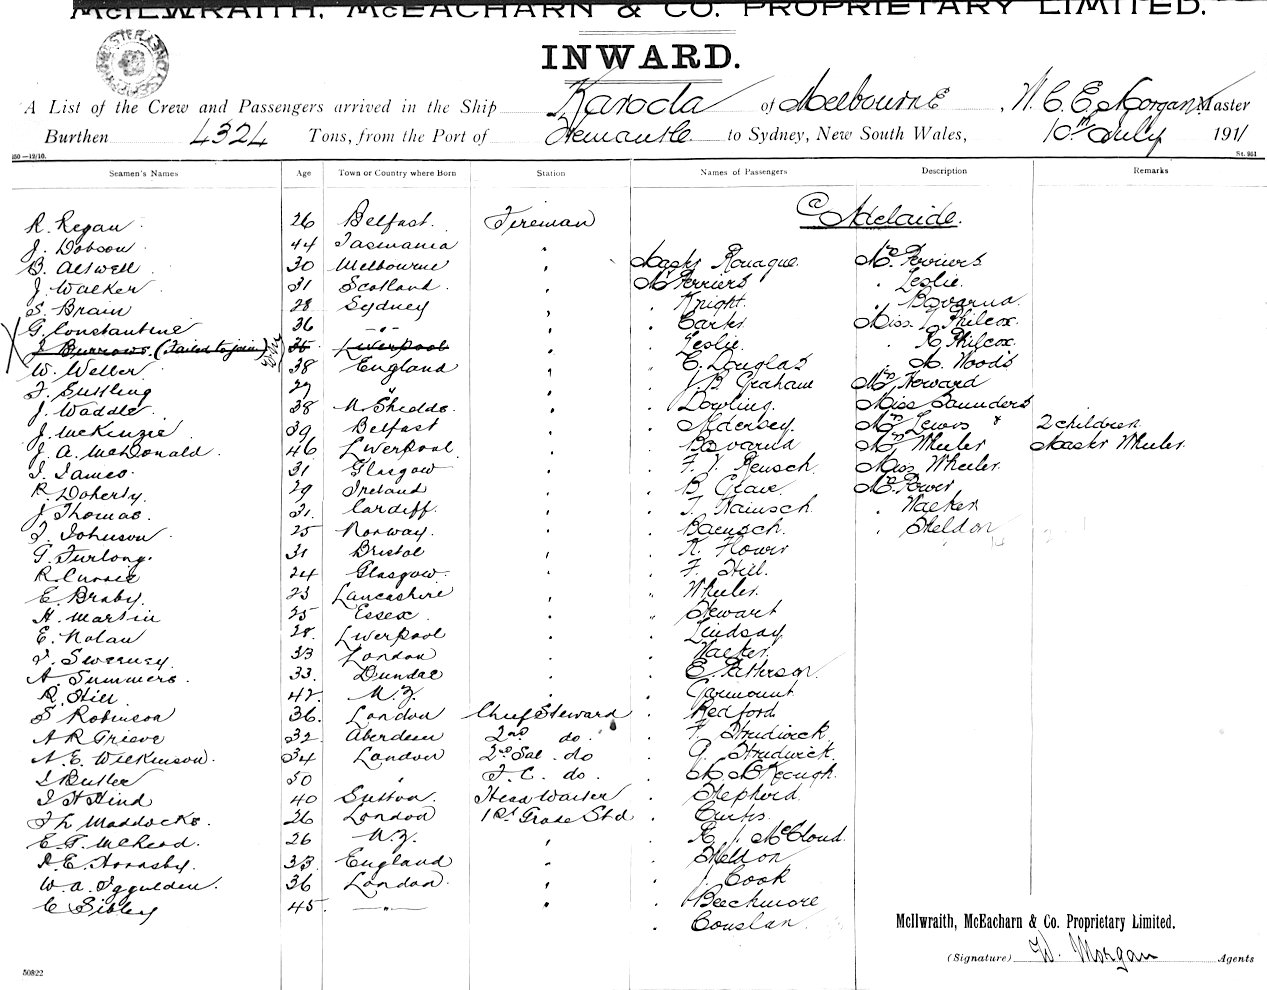 McILWRAITH, McEACHARN & CO. PROPRIETARY LIMITED.
INWARD.
A List of the Crew and Passengers arrived in the Ship Karoola of Melbourne, W. C. E. Morgan Master
Burthen 4324 Tons, from the Port of Fremantle to Sydney, New South Wales, 10th July 1911
350 —12/10. St. 951
Seamen's Names Age Town or Country where Born Station Names of Passengers Description Remarks
@ Adelaide.
R. Regan 26 Belfast. Fireman
J. Dobson 44 Tasmania
B. Atswell 30 Melbourne
J. Walker 31 Scotland
S. Brain 28 Sydney
G. Constantine 36 - " -
J. Burrows. (Failed to join) 35 Liverpool
W. Weller 38 England
F. Sutling 27 "
J. Waddle 38 N Shields.
J. McKenzie 39 Belfast
J. A. McDonald 46 Liverpool
J. James 31 Glasgow
R Doherty 29 Ireland
J Thomas. 31 Cardiff.
J. Johnson 25 Norway.
T. Furlong. 31 Bristol
R. Currie 24 Glasgow
E. Braby. 23 Lancashire
H. Martin 25 Essex
E. Nolan 28 Liverpool
J. Sweeney. 33 London
A. Summers. 33. Dundee
R. Hill 42 N. Z.
S Robinson 36. London Chief Steward
A R Grieve 32 Aberdeen 2nd do.
N. E. Wilkinson. 34 London 2nd Sal. do
J Butler 50 " F. C. do.
J H Hind 40 Sutton. Head Waiter
J L Maddocks. 26 London 1st Grade Std
E. T. McLeod. 26 N. Z.
A. E. Hornsby. 33 England
W. A. Iggulden. 36 London.
C Sibley 45 - " -
Mr Ferriers
Knight.
Leslie.
C. Douglas
J. B. Grahame
Dowling.
Aldersey.
Bavarna
F. J. Reusch.
B. Glave.
Baensch.
R. Flower
F. Hill.
Wheeler.
Stewart
Lindsay
Walker.
E. Patterson.
Garmount
Redford.
F. Strudwick.
G. Strudwick.
M McKeough.
Shepherd.
Curtis.
R. J. McCloud.
Sheldon
J. Cook
Beechmore
Couslan.
Mrs Ferriers
" Leslie.
" Bavarna
Miss J. Philcox.
" R Philcox.
" M. Woods
Mrs Howard
Miss Saunders
Mrs Lewis & 2 children
Mrs Wheeler Master Wheeler.
Miss Wheeler.
Mrs Power
" Walker
" Sheldon
McIlwraith, McEacharn & Co. Proprietary Limited.
(Signature) W. Morgan Agents
50822